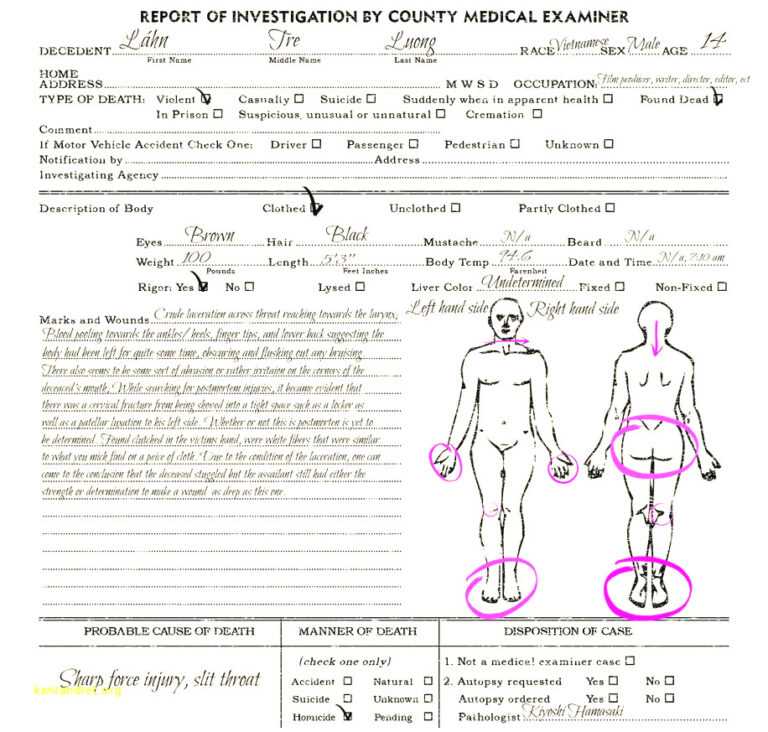 REPORT OF INVESTIGATION BY COUNTY MEDICAL EXAMINER
DECEDENT Láhn Tre Luong RACE Vietnamese SEX Male AGE 14
First Name Middle Name Last Name
HOME
ADDRESS M W S D OCCUPATION: Film producer, writer, director, editor, ect
TYPE OF DEATH: Violent ☑ Casualty ☐ Suicide ☐ Suddenly when in apparent health ☐ Found Dead ☑
In Prison ☐ Suspicious, unusual or unnatural ☐ Cremation ☐
Comment
If Motor Vehicle Accident Check One: Driver ☐ Passenger ☐ Pedestrian ☐ Unknown ☐
Notification by Address
Investigating Agency
Description of Body Clothed ☑ Unclothed ☐ Partly Clothed ☐
Eyes Brown Hair Black Mustache N/a Beard N/a
Weight 100 Length 5'3" Body Temp 94.6 Date and Time N/a, 7:10 am
Pounds Feet Inches Farenheit
Rigor: Yes ☑ No ☐ Lysed ☐ Liver Color Undetermined Fixed ☐ Non-Fixed ☐
Left hand side Right hand side
Marks and Wounds Crude laceration across throat reaching towards the larynx,
Blood pooling towards the ankles/ heels, finger tips, and lower back suggesting the
body had been left for quite some time, obsuring and flushing out any bruising.
There also seems to be some sort of abrasion or rather irritaion on the corners of the
deceased's mouth. While searching for postmortem injuries, it became evident that
there was a cervical fracture from being shoved into a tight space such as a locker as
well as a patellar luxation to his left side. Whether or not this is postmorten is yet to
be determined. Found clutched in the victims hand, were white fibers that were similar
to what you mick find on a peice of cloth. Due to the condition of the laceration, one can
come to the conclusion that the deceased stuggled but the assailant still had either the
strength or determination to make a wound as deep as this one.
PROBABLE CAUSE OF DEATH MANNER OF DEATH DISPOSITION OF CASE
(check one only) 1. Not a medical examiner case ☐
Sharp force injury, slit throat Accident ☐ Natural ☐ 2. Autopsy requested Yes ☐ No ☐
Suicide ☐ Unknown ☐ Autopsy ordered Yes ☐ No ☐
Homicide ☑ Pending ☐ Pathologist Kiyoshi Hamasaki